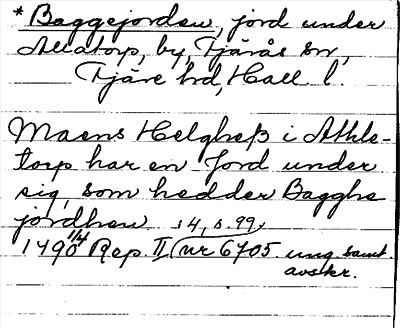 * Baggejorden, jord under
Allatorp, by, Tjärås sn,
Fjäre hd, Hall l.
Maens Helgheß i Athle-
torp har en Jord under
sig, som hedder Bagghe
jordhen. s 4, s. 99.
1490 1/4 Rep. II (nr 6705. ung. samt.
avskr.